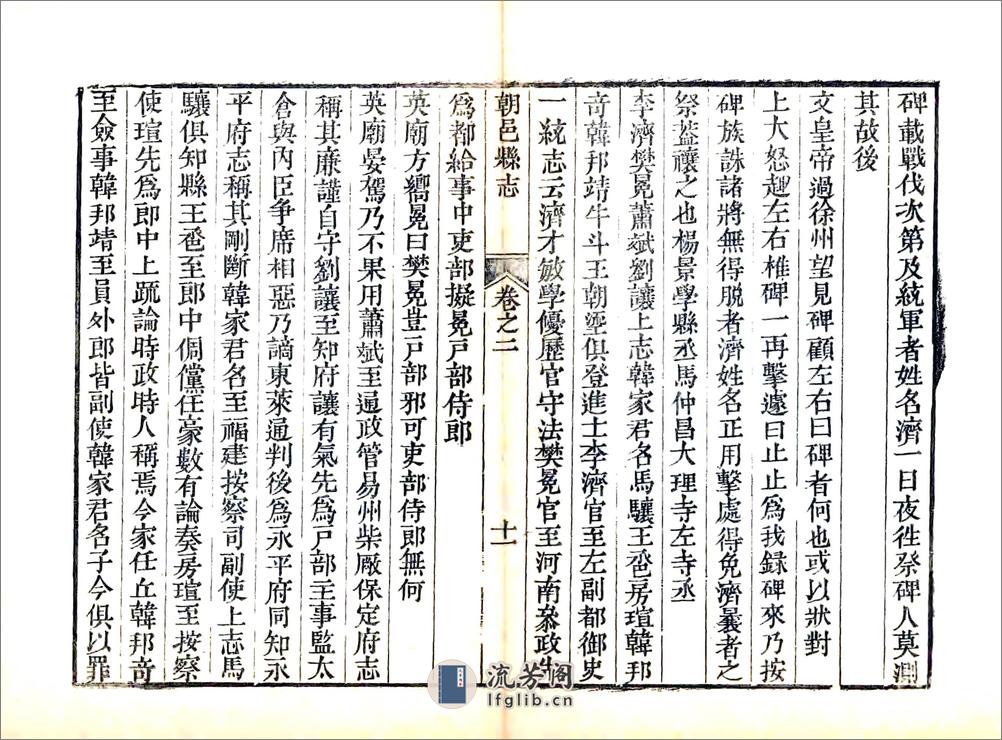 碑載戰伐次第及統軍者姓名濟一日夜徃祭碑人莫測
其故後
文皇帝過徐州望見碑顧左右曰碑者何也或以狀對
上大怒趣左右椎碑一再擊遽曰止止爲我録碑來乃按
碑族誅諸將無得脱者濟姓名正用擊處得免濟曩者之
祭蓋禳之也楊景學縣丞馬仲昌大理寺左寺丞
李濟樊冕蕭斌劉讓上志韓家君名馬驤王㫤房瑄韓邦
竒韓邦靖牛斗王朝𡐛俱登進士李濟官至左副都御史
一統志云濟才敏學優歷官守法樊冕官至河南參政先
朝邑縣志
卷之二
十一
爲都給事中吏部擬冕戸部侍郎
英廟方嚮冕曰樊冕豈戸部邪可吏部侍郎無何
英廟晏駕乃不果用蕭斌至通政管易州柴厰保定府志
稱其廉謹自守劉讓至知府讓有氣先爲戸部主事監太
倉與内臣争席相惡乃謫東萊通判後爲永平府同知永
平府志稱其剛斷韓家君名至福建按察司副使上志馬
驤俱知縣王㫤至郎中倜儻任豪數有論奏房瑄至按察
使瑄先爲郎中上疏論時政時人稱焉今家任丘韓邦竒
至僉事韓邦靖至員外郎皆副使韓家君名子今俱以罪
流芳阁
lfglib.cn